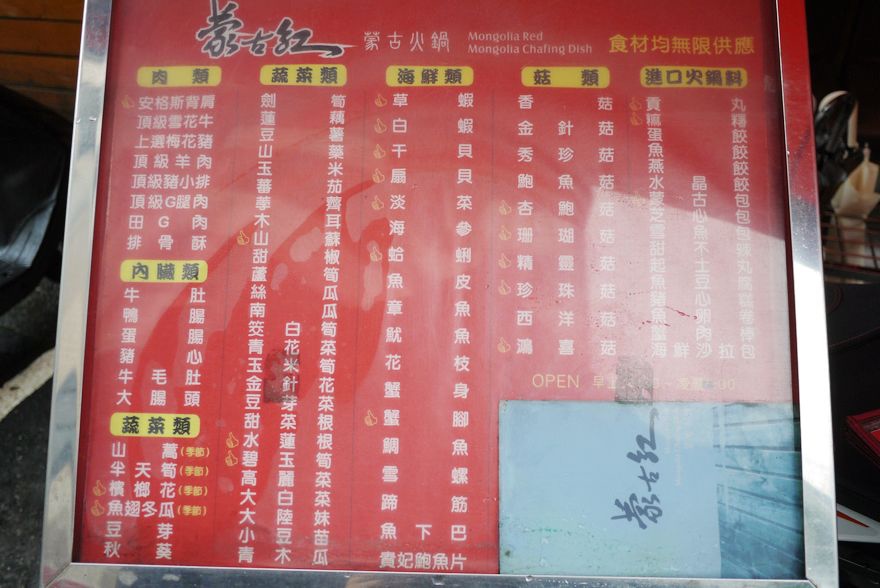 蒙古紅
蒙古火鍋
Mongolia Red
Mongolia Chafing Dish
食材均無限供應
肉類
安格斯背肩
頂級雪花牛
上選梅花豬
頂級羊肉
頂級豬小排
頂級G腿肉
田G肉
排骨酥
內臟類
牛肚
鴨腸
蛋腸
豬心
牛毛肚
大腸頭
蔬菜類
山蒿(季節)
半天筍(季節)
檳榔花(季節)
魚翅冬瓜(季節)
豆芽
秋葵
蔬菜類
劍筍
蓮藕
豆薯
山藥
玉米
蕃茄
茡薺
木耳
山蘇
甜椒
蘆筍
絲瓜
南瓜
筊白筍
青花菜
玉米筍
金針花
豆芽菜
甜菜根
水蓮根
碧玉筍
高麗菜
大白菜
大陸妹
小豆苗
青木瓜
海鮮類
草蝦
白蝦
干貝
扇貝
淡菜
海參
蛤蜊
魚皮
章魚
魷魚
花枝
蟹身
蟹腳
鯛魚
雪螺
蹄筋
魚下巴
貴妃鮑魚片
菇類
香菇
金針菇
秀珍菇
鮑魚菇
杏鮑菇
珊瑚菇
精靈菇
珍珠菇
西洋菇
鴻喜菇
進口火鍋料
貢丸
蛋餃
魚餃
燕餃
水晶餃
蒙古包
芝心包
雪魚包
甜不辣
起士丸
魚豆腐
魚卵卷
蟹肉棒
海鮮沙拉包
OPEN 早上
蒙古紅